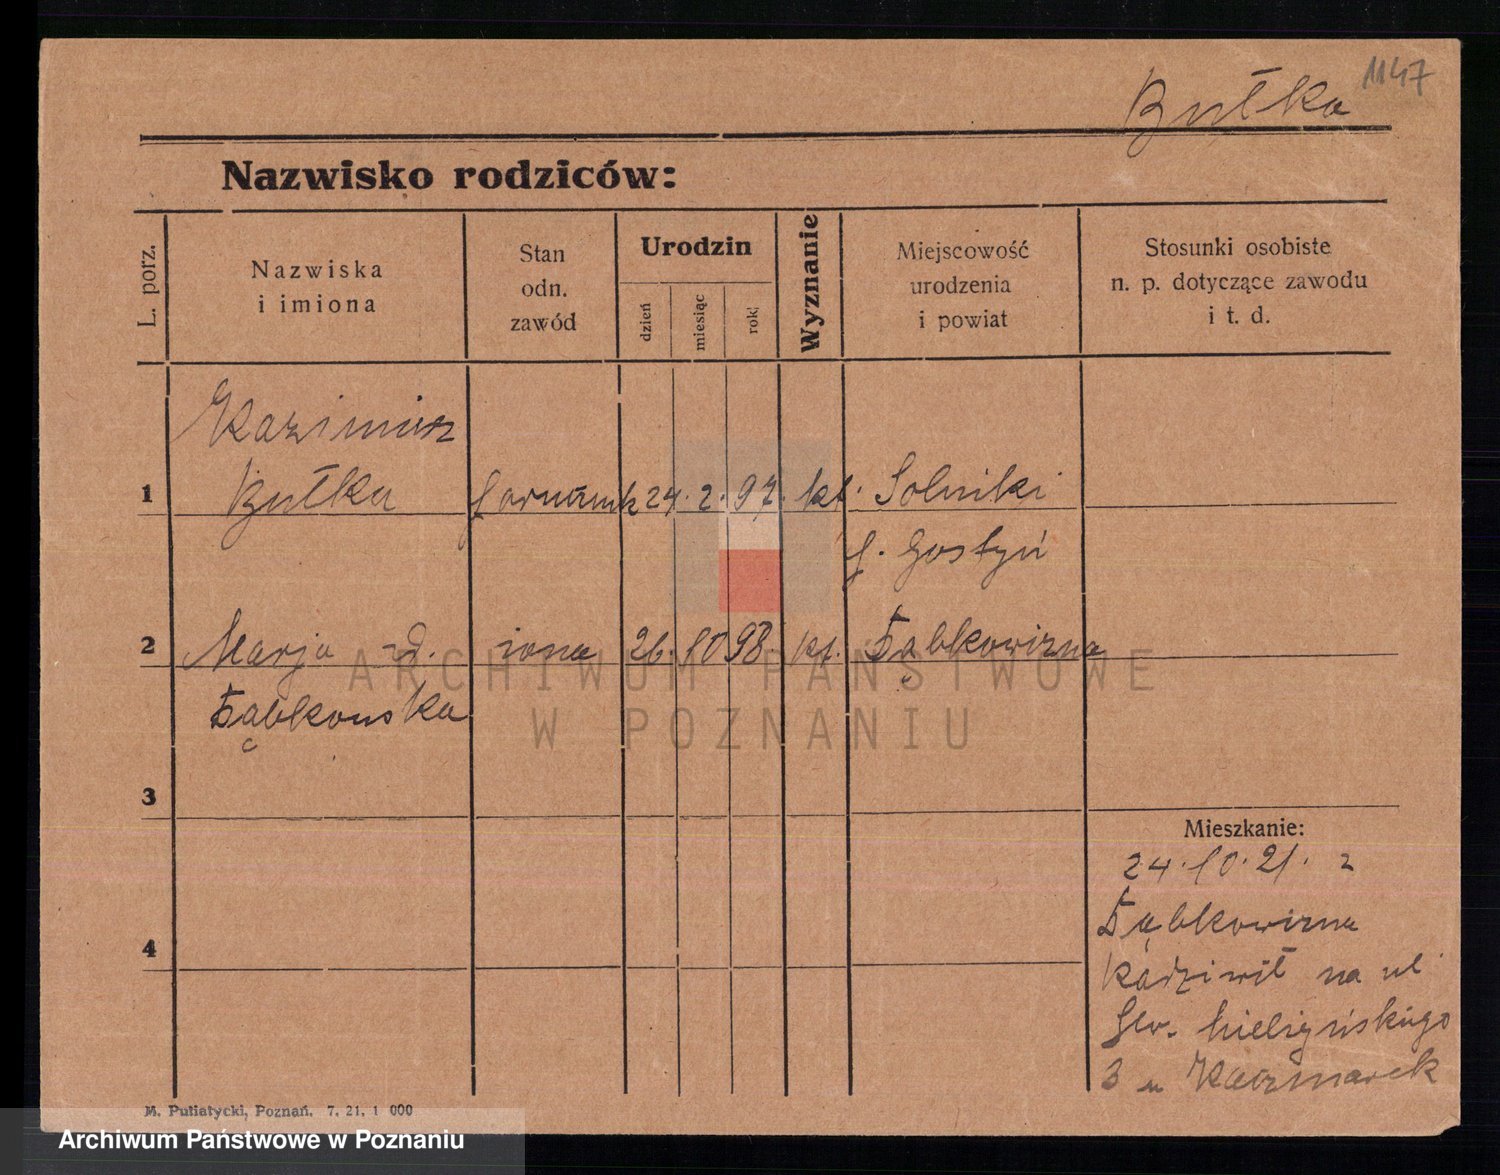 1147
Bułka
Nazwisko rodziców:
L. porz.
Nazwiska
i imiona
Stan
odn.
zawód
Urodzin
dzień
miesiąc
rok
Wyznanie
Miejscowość
urodzenia
i powiat
Stosunki osobiste
n. p. dotyczące zawodu
i t. d.
Kazimierz
1 Bułka 24. 2. 97. kt. Solniki
p. Gostyń
2 Marja d. żona 26. 10 98 kt. Dąbkowizna
Dąbkowska
3
Mieszkanie:
24. 10. 21. z
Dąbkowizna
4
na ul.
3 u Kaczmarek
M. Putiatycki, Poznań. 7. 21, 1 000
ARCHIWUM PAŃSTWOWE
W POZNANIU
Archiwum Państwowe w Poznaniu